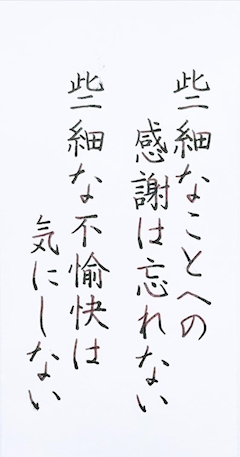 些細なことへの
感謝は忘れない
些細な不愉快は
気にしない